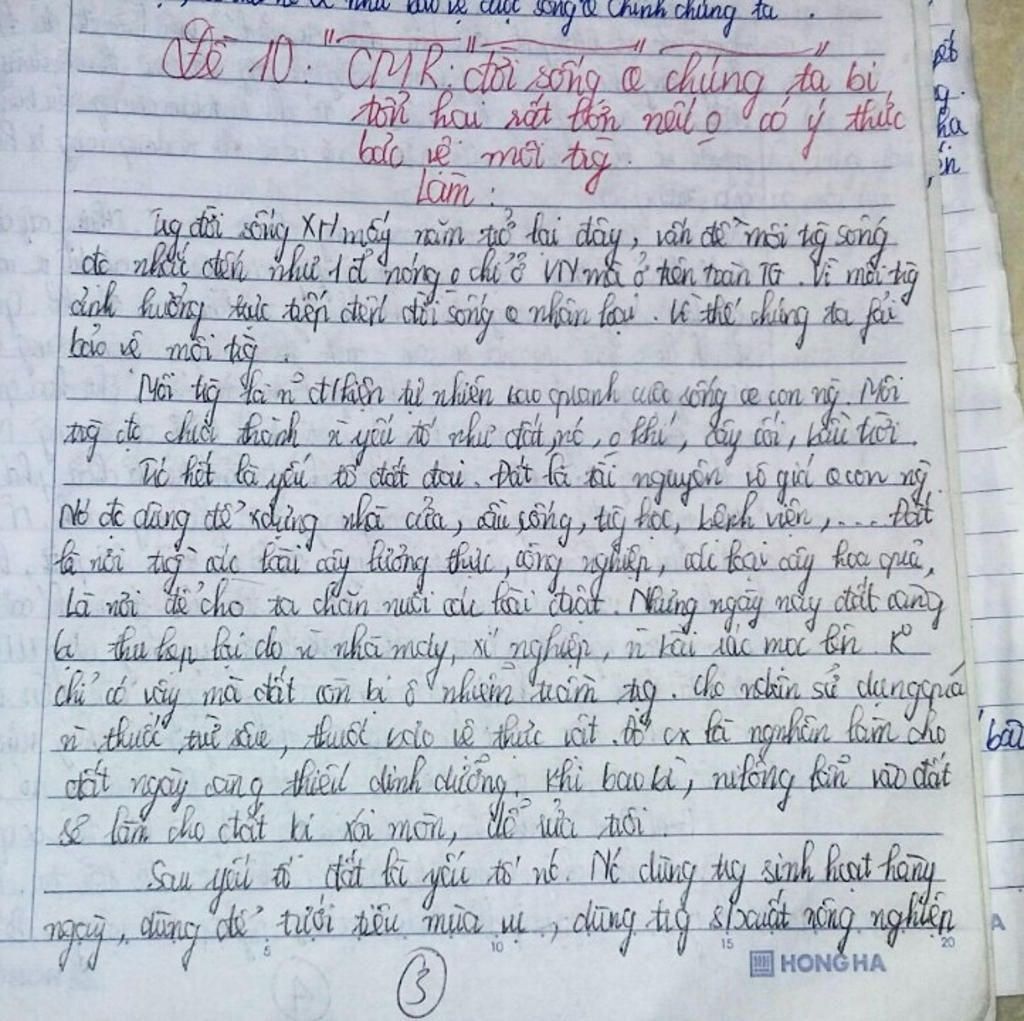 như bảo vệ cuộc sống @ chính chúng ta .
Đề 10: "CMR: đời sống @ chúng ta bị
tổn hại rất lớn nếu o có ý thức
bảo vệ môi trg".
Làm:
Trg đời sống XH mấy năm trở lại đây, vấn đề môi trg sống
đc nhắc đến như 1 đề nóng o chỉ ở VN mà ở trên toàn TG. Vì môi trg
ảnh hưởng trực tiếp đến đời sống @ nhân loại. Vì thế chúng ta fải
bảo vệ môi trg.
Môi trg là n~ đ/kiện tự nhiên bao quanh cuộc sống @ con ng. Môi
trg đc chia thành n~ yếu tố như đất, nc, o khí, cây cối, bầu trời.
Trc hết là yếu tố đất đai. Đất là tài nguyên vô giá @ con ng.
Nó đc dùng để xdựng nhà cửa, cầu sống, trg học, bệnh viện, .... Đất
là nơi trg các loài cây lương thực, công nghiệp, các loại cây hoa quả,
là nơi để cho ta chăn nuôi các loài đvật. Nhưng ngày nay đất càng
bị thu hẹp lại do n~ nhà máy, xí nghiệp, n~ bãi rác mọc lên. K
chỉ có vậy mà đất còn bị ô nhiễm trầm trg. Cho nên sử dụng quá
n~ thuốc trừ sâu, thuốc bảo vệ thực vật. Đó cx là ng nhân làm cho
đất ngày càng thiếu dinh dưỡng. Khi bao bì, nilông lẫn vào đất
sẽ làm cho đất bị xói mòn, dễ rửa trôi.
Sau yếu tố đất là yếu tố nc. Nc dùng trg sinh hoạt hàng
ngày, dùng để tưới tiêu mùa vụ, dùng trg s/xuất nông nghiệp
3
5
10
15
20
HONG HA
bảo